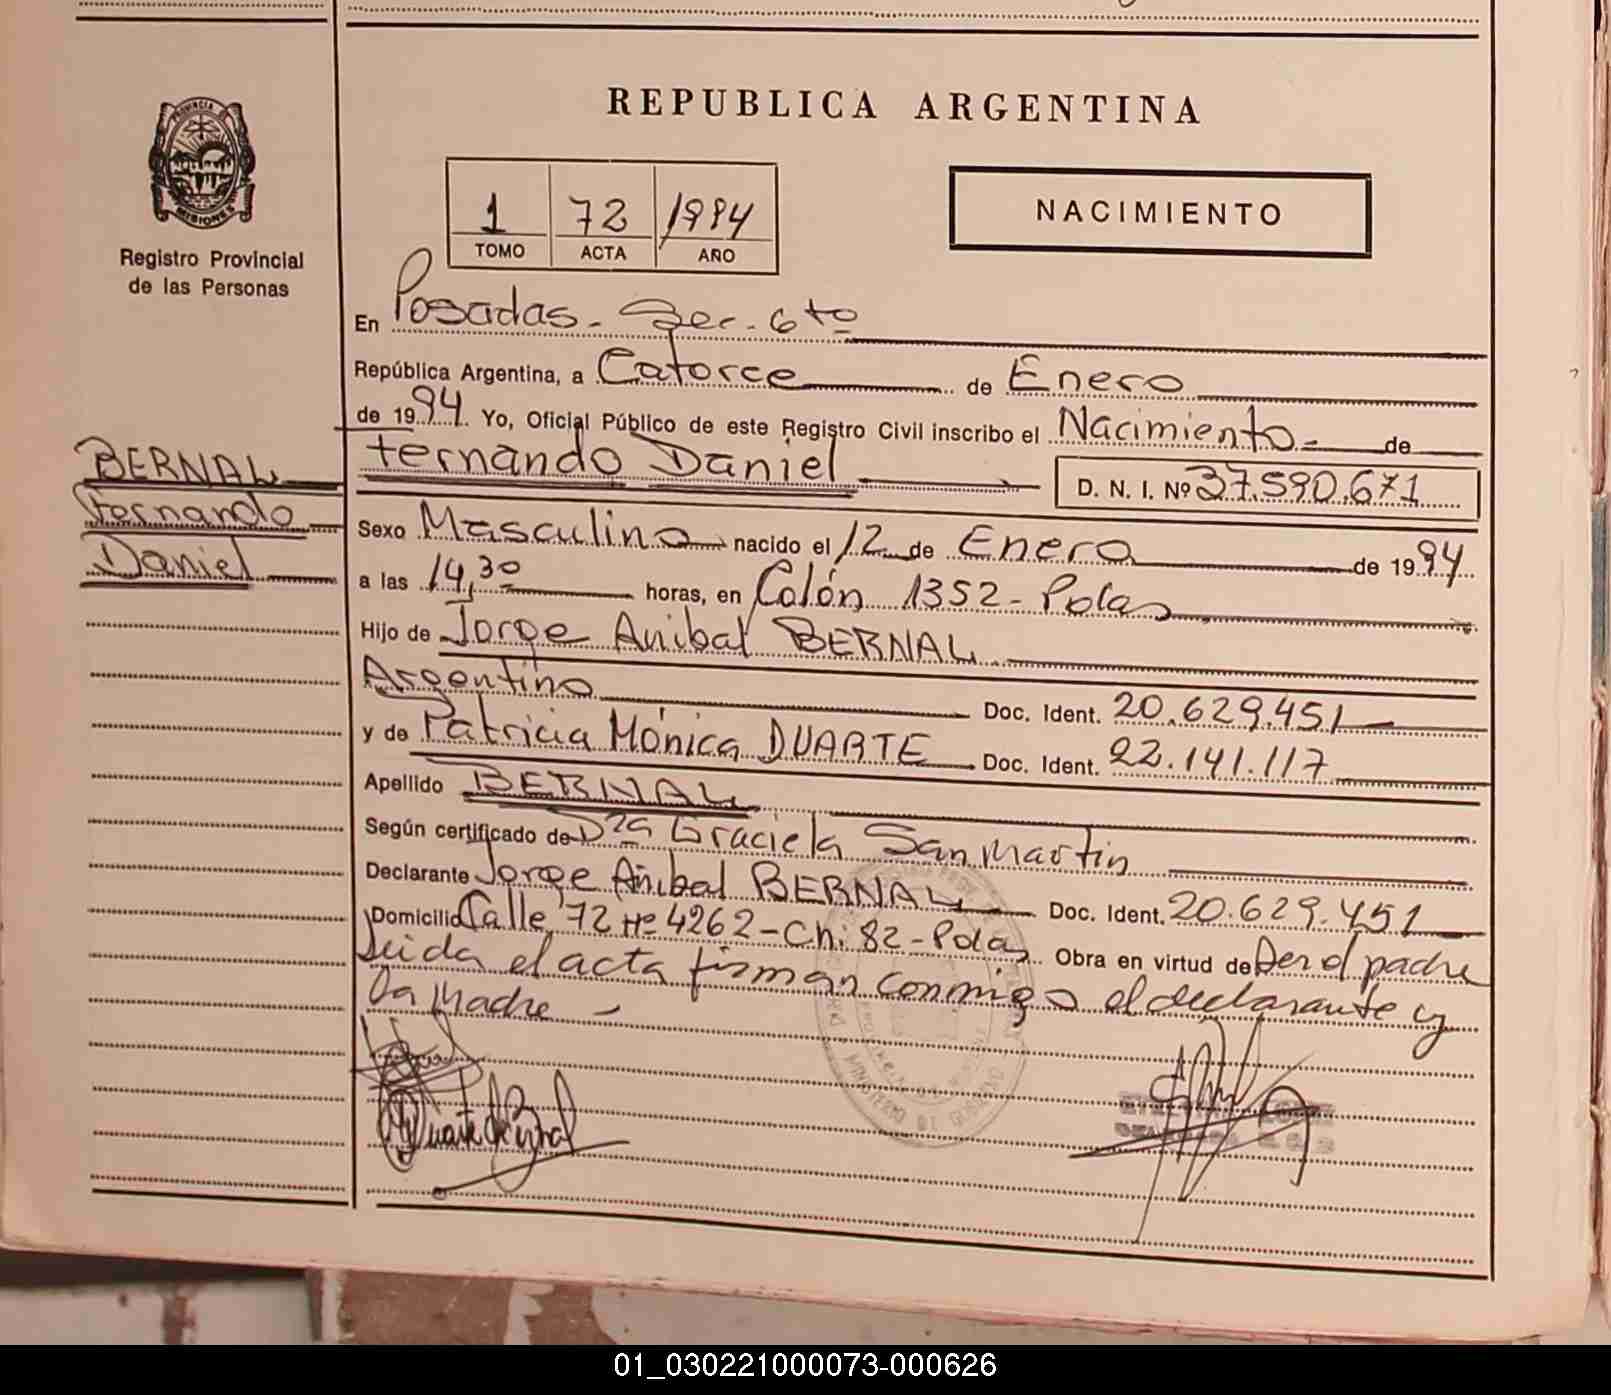 REPUBLICA ARGENTINA
PROVINCIA DE
MISIONES
Registro Provincial
de las Personas
1 72 1994
TOMO ACTA AÑO
NACIMIENTO
En Posadas - Sec. 6to
República Argentina, a Catorce de Enero
de 1994 Yo, Oficial Público de este Registro Civil inscribo el Nacimiento - de
BERNAL
Fernando
Daniel
Fernando Daniel D. N. I. Nº 37.590.671
Sexo Masculino nacido el 12 de Enero de 1994
a las 14,30 horas, en Colón 1352 - Pdas
Hijo de Jorge Anibal BERNAL
Argentino Doc. Ident. 20.629.451
y de Patricia Mónica DUARTE Doc. Ident. 22.141.117
Apellido BERNAL
Según certificado de Dra Graciela San Martin
Declarante Jorge Anibal BERNAL Doc. Ident. 20.629.451
Domicilio Calle 72 Nº 4262 - Ch: 82 - Pdas Obra en virtud de Ser el padre
Leida el acta firman conmigo el declarante y
la Madre -
Duarte de Bernal
MINISTERIO DE GOBIERNO
01_030221000073-000626